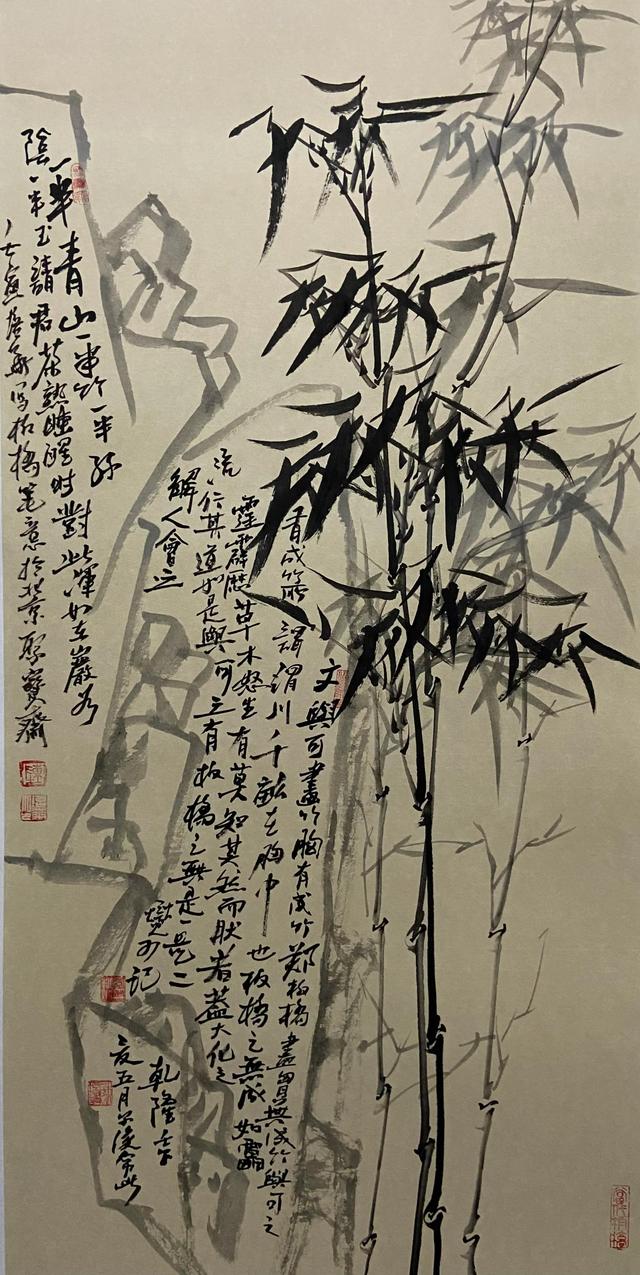 文與可畫竹胸有成竹鄭板橋畫竹胸無成竹與可之
有成竹所謂渭川千畝在胸中也板橋之無成如雷
霆霹靂草木怒生有莫知其然而然者蓋大化之
流行其道如是與可之有板橋之無是一是二
解人會之
燮記
乾隆
五月
一半青山一半竹一半綠
陰一半玉請君茶熟睡醒時對此渾如在巖谷
寫板橋筆意於北京聚寶齋